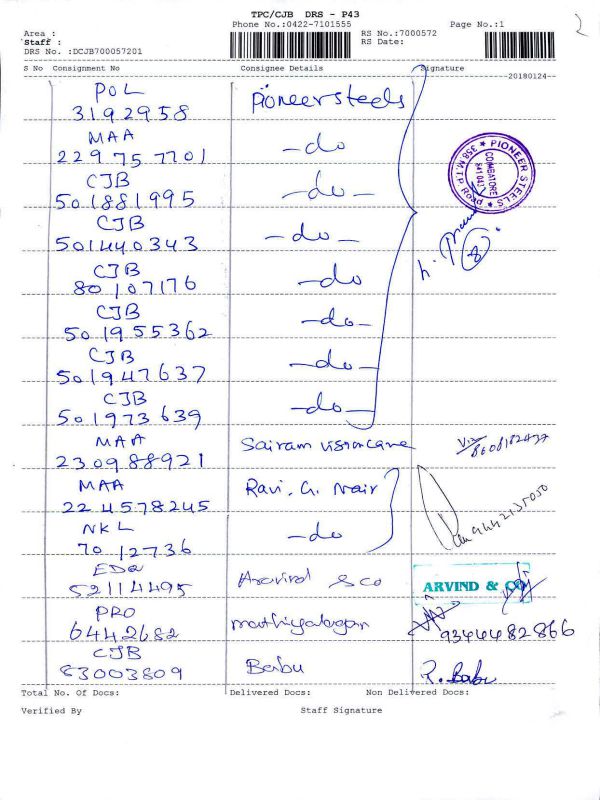 TPC/CJB DRS - P43
Phone No.:0422-7101555
Page No.:1
2
Area :
RS No.:7000572
Staff :
RS Date:
DRS No. :DCJB700057201
S No Consignment No Consignee Details Signature
20180124
POL
3192958 Pioneer steels
MAA
229757701 -do
CJB
501881995 -do-
CJB
501440343 -do-
CJB
80107176 -do
CJB
501955362 -do-
CJB
501947637 -do-
CJB
501973639 -do-
PIONEER STEELS
358 M.T.P. Road
COIMBATORE
641 043
8
MAA
230988921 Sairam visioncare
8608182437
MAA
224578245 Ravi. G. Nair
NKL
7012736 -do
9442135050
EDQ
52114495 Aravind & co
ARVIND & CO
PRO
6442682 mathiyalagan
9344482866
CJB
83003809 Babu R. Babu
Total No. Of Docs: Delivered Docs: Non Delivered Docs:
Verified By Staff Signature